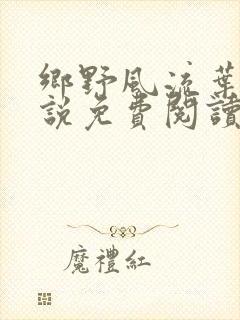 鄉野風流葉
說免費閱讀
魔禮紅